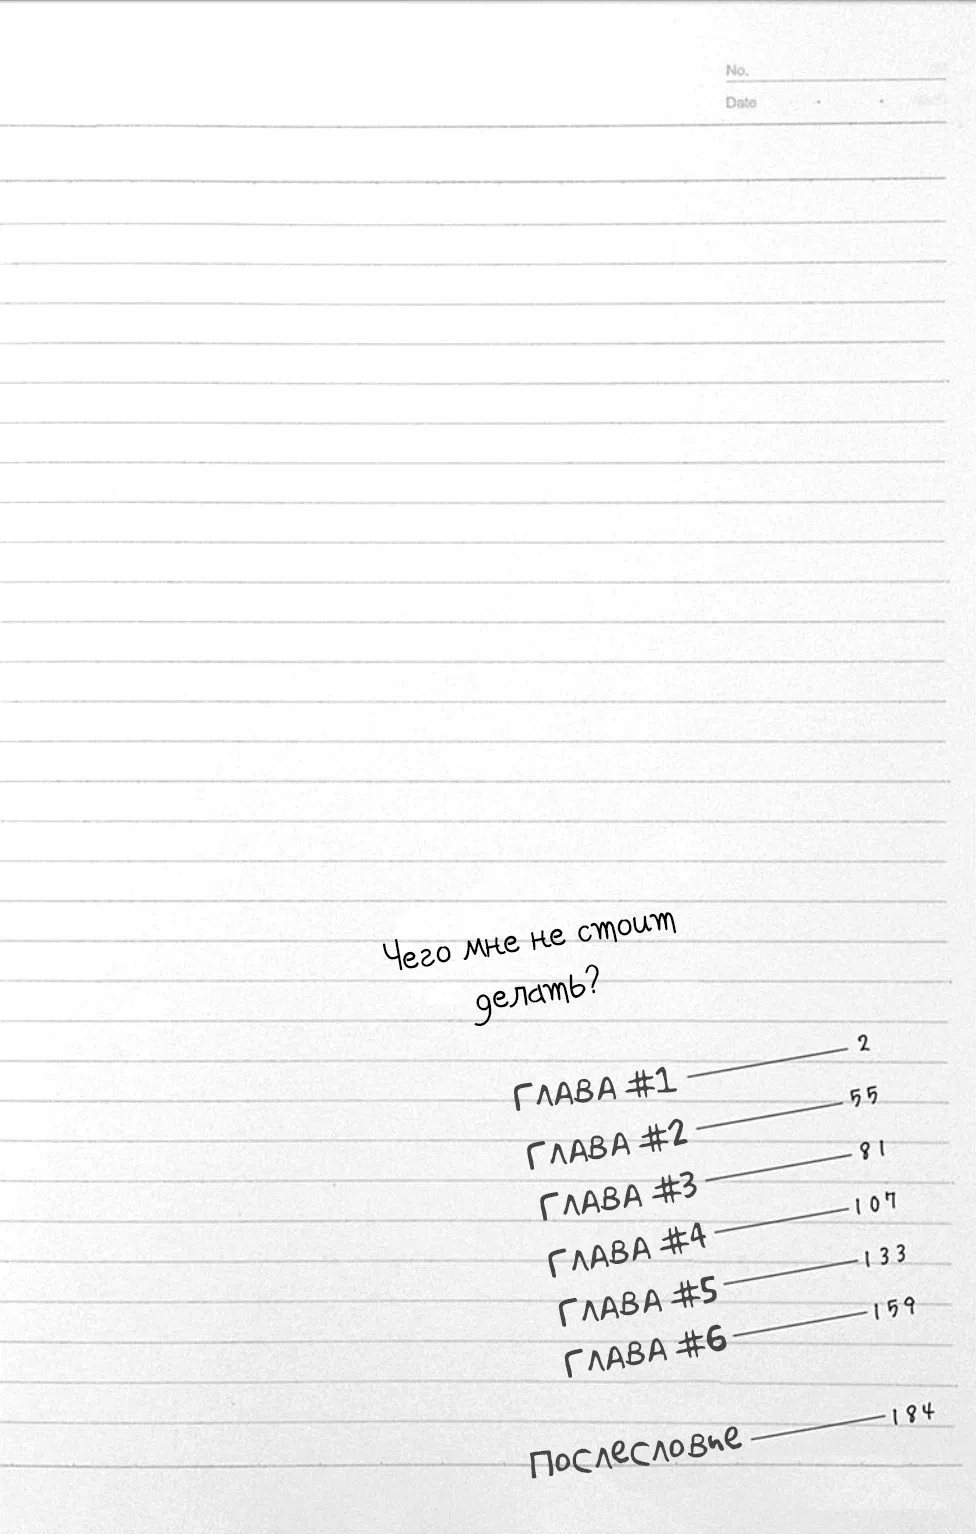 No.
Date
Чего мне не стоит
делать?
ГЛАВА #1 2
ГЛАВА #2 55
ГЛАВА #3 81
ГЛАВА #4 107
ГЛАВА #5 133
ГЛАВА #6 159
Послесловие 184